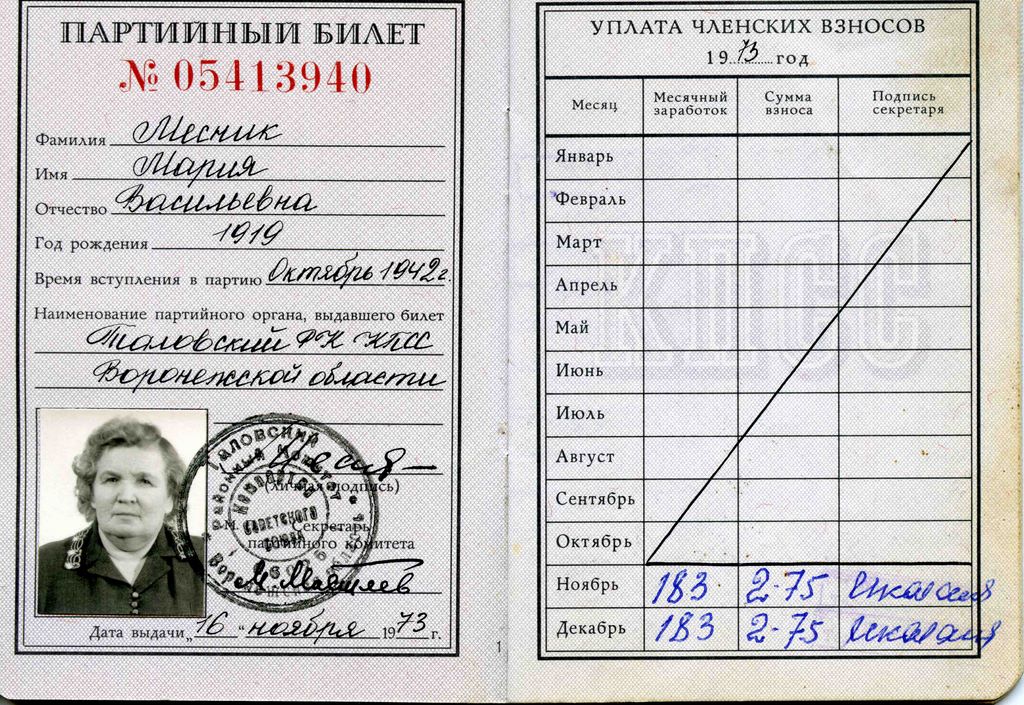 ПАРТИЙНЫЙ БИЛЕТ
№ 05413940
Фамилия Месник
Имя Мария
Отчество Васильевна
Год рождения 1919
Время вступления в партию Октябрь 1942 г.
Наименование партийного органа, выдавшего билет
Таловский РК КПСС
Воронежской области
(личная подпись)
М. Секретарь
партийного комитета
Дата выдачи „16“ ноября 1973 г.
ТАЛОВСКИЙ
РАЙОННЫЙ КОМИТЕТ
СОВЕТСКОГО
СОЮЗА
1
УПЛАТА ЧЛЕНСКИХ ВЗНОСОВ
1973 год
Месяц Месячный заработок Сумма взноса Подпись секретаря
Январь
Февраль
Март
Апрель
Май
Июнь
Июль
Август
Сентябрь
Октябрь
Ноябрь 183 2-75
Декабрь 183 2-75
КПСС